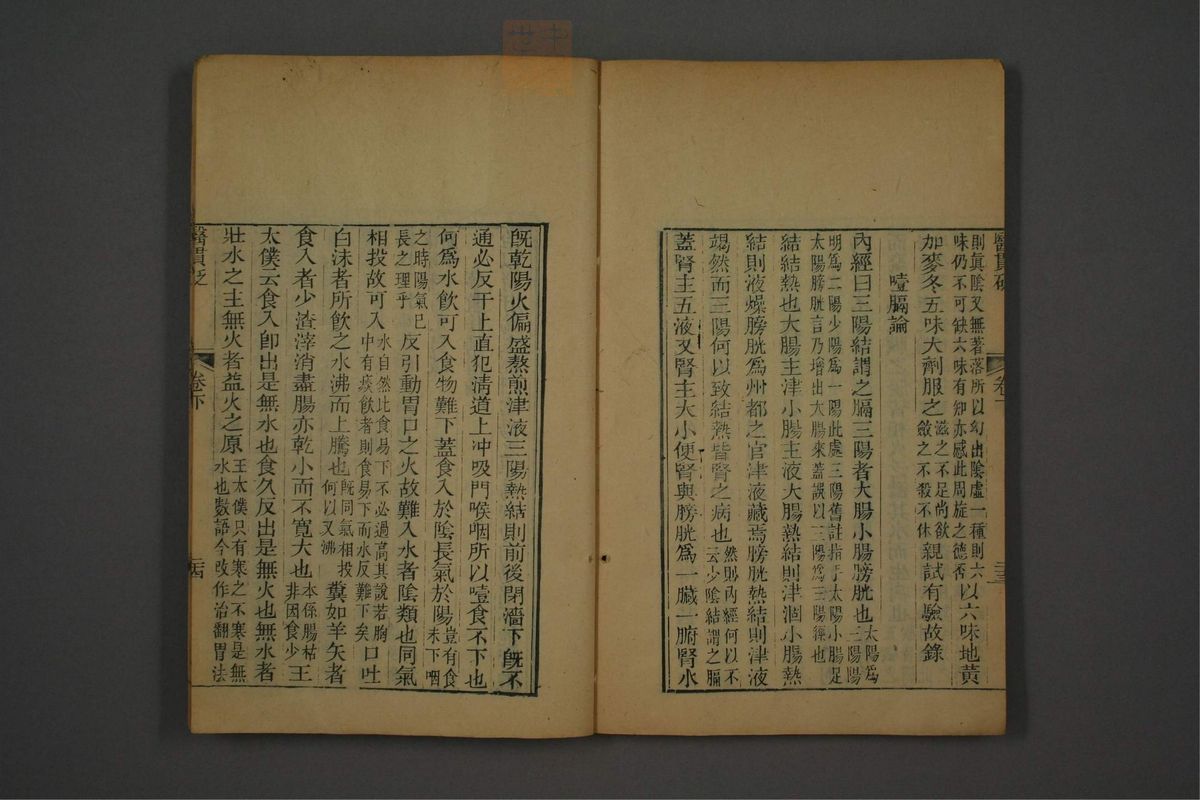 醫貫砭
卷下
二三
則眞陰又無著落所以幻出陰虛一種則六
味仍不可缺六味有知亦感此周旋之德否以六味地黄
加麥冬五味大劑服之滋之不足尚欲斂之不殺不休親試有驗故錄
噎膈論
內經曰三陽結謂之膈三陽者大腸小腸膀胱也太陽爲三陽陽
明爲二陽少陽爲一陽此處三陽舊註指手太陽小腸足
太陽膀胱言乃增出大腸來蓋誤以三陽爲三陽經也
結結熱也大腸主津小腸主液大腸熱結則津涸小腸熱
結則液燥膀胱爲州都之官津液藏焉膀胱熱結則津液
竭然而三陽何以致結熱皆腎之病也然則內經何以不云少陰結謂之膈
蓋腎主五液又腎主大小便腎與膀胱爲一臟一腑腎水
旣乾陽火偏盛熬煎津液三陽熱結則前後閉濇下旣不
通必反干上直犯清道上冲吸門喉咽所以噎食不下也
何爲水飲可入食物難下蓋食入於陰長氣於陽豈有食未下咽
之時陽氣已長之理乎反引動胃口之火故難入水者陰類也同氣
相投故可入水自然比食易下不必過高其說若胸中有痰飲者則食易下而水反難下矣口吐
白沫者所飲之水沸而上騰也旣同氣相投何以又沸糞如羊矢者
食入者少渣滓消盡腸亦乾小而不寬大也本係腸枯非因食少王
太僕云食入卽出是無水也食久反出是無火也無水者
壯水之主無火者益火之原王太僕只有寒之不寒是無水也數語今改作治翻胃法
醫貫砭
卷下
二四